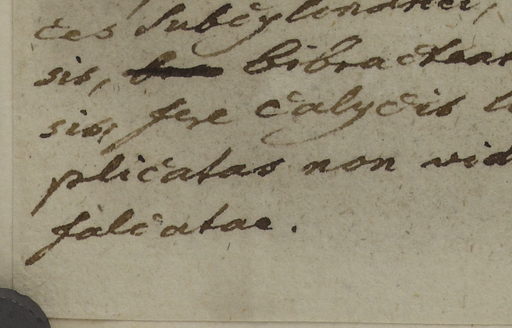 ces subcylindrici,
sis, bibractea
sis, fere calycis
plicatas non vid
falcatae.